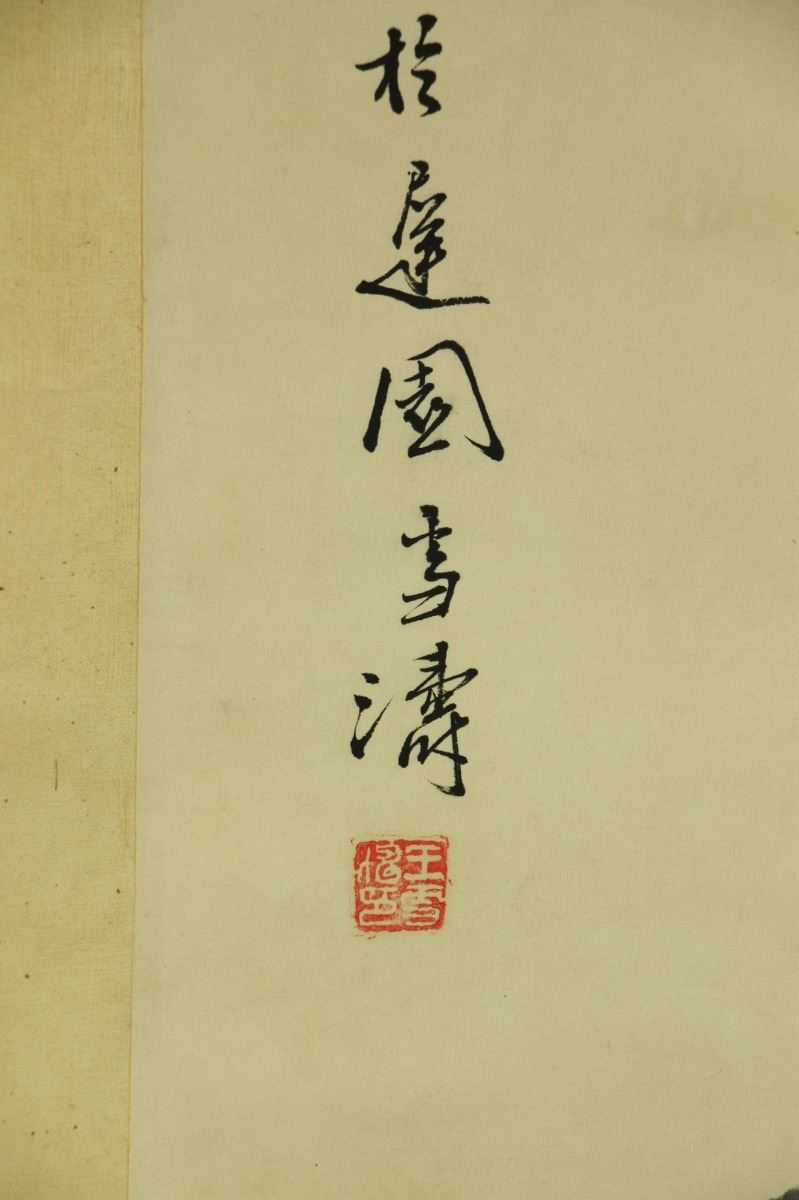 於遲園雪濤
王雪濤印